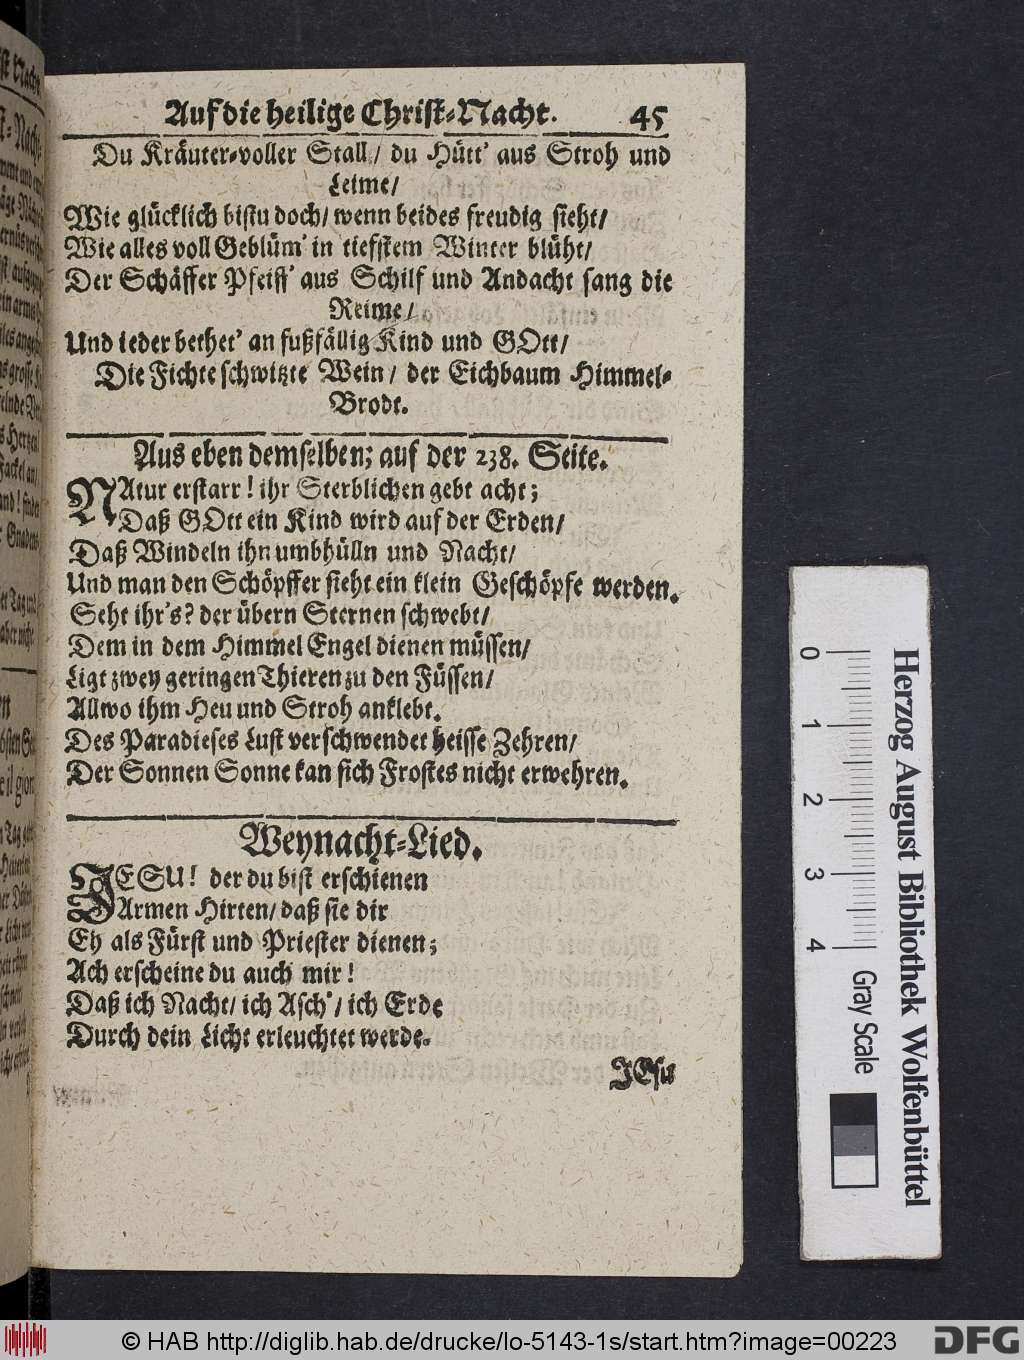 Auf die heilige Christ-Nacht. 45
Du Kräuter-voller Stall/ du Hütt' aus Stroh und
Leime/
Wie glücklich bistu doch/ wenn beides freudig sieht/
Wie alles voll Geblüm' in tiefstem Winter blüht/
Der Schäffer Pfeiff' aus Schilf und Andacht sang die
Reime/
Und ieder bethet' an fußfällig Kind und GOtt/
Die Fichte schwitzte Wein/ der Eichbaum Himmel-
Brodt.
Aus eben demselben; auf der 238. Seite.
NAtur erstarr! ihr Sterblichen gebt acht;
Daß GOtt ein Kind wird auf der Erden/
Daß Windeln ihn umbhülln und Nacht/
Und man den Schöpffer sieht ein klein Geschöpfe werden.
Seht ihr's? der übern Sternen schwebt/
Dem in dem Himmel Engel dienen müssen/
Ligt zwey geringen Thieren zu den Füssen/
Allwo ihm Heu und Stroh anklebt.
Des Paradieses Lust verschwendet heisse Zehren/
Der Sonnen Sonne kan sich Frostes nicht erwehren.
Weynacht-Lied.
JESU! der du bist erschienen
Armen Hirten/ daß sie dir
Eh als Fürst und Priester dienen;
Ach erscheine du auch mir!
Daß ich Nacht/ ich Asch'/ ich Erde
Durch dein Licht erleuchtet werde.
JEsu
0 1 2 3 4 Gray Scale
Herzog August Bibliothek Wolfenbüttel
© HAB http://diglib.hab.de/drucke/lo-5143-1s/start.htm?image=00223
DFG